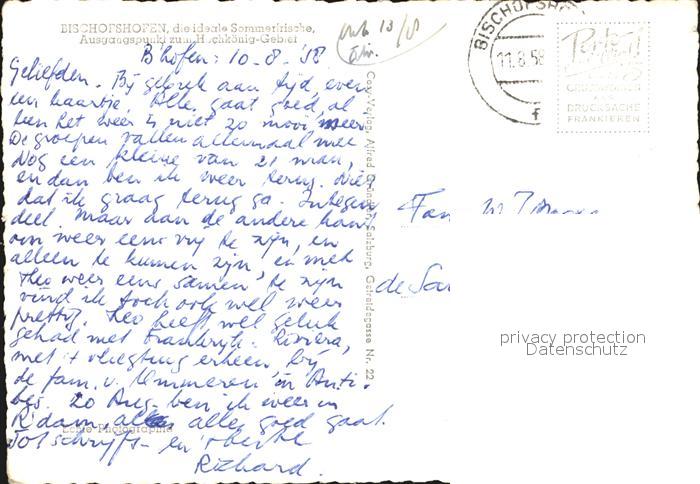 BISCHOFSHOFEN, die ideale Sommerfrische,
Ausgangspunkt zum Hochkönig-Gebiet
B'hofen: 10-8-'58
Geliefden. Bij gebrek aan tijd, even
een kaartje. Alle gaat goed, al
hen het weer is niet zo mooi meer
De groepen vallen allemaal mee
Nog een kleine van 21 man,
en dan ben ik weer terug. Niet
dat ik graag terug ga. Integen
deel. Maar aan de andere kant
om weer eens vrij te zijn, en
alleen te kunnen zijn, en met
Theo weer eens samen te zijn
vind ik toch ook wel weer
prettig. Leo heeft wel geluk
gehad met Frankrijk. Riviera,
met 't vliegtuig erheen, bij
de fam. v. Ummeren in Anti-
bes. 20 Aug. ben ik weer in
R'dam, alles goed gaat.
Tot schrijfs- en
Richard.
Echte Photographie
Cosy-Verlag, Alfred Gründler, Salzburg, Getreidegasse Nr. 22
BISCHOFSH
11.8.58
f
DRUCKSACHE
FRANKIEREN
Fam
de
privacy protection
Datenschutz